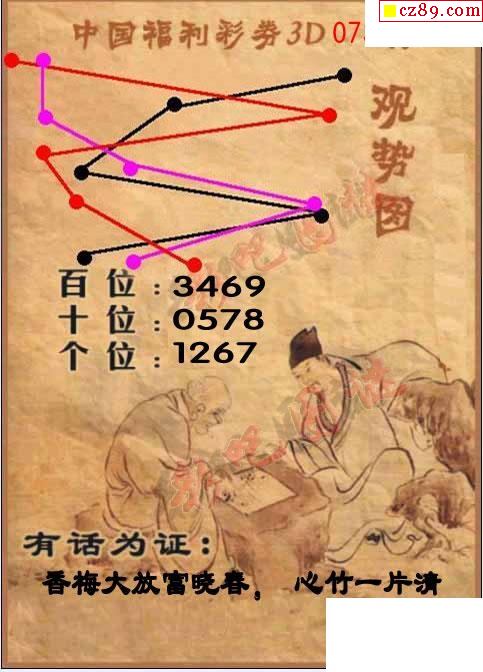 cz89.com
中国福利彩券3D 07
观势图
百位：3469
十位：0578
个位：1267
有话为证：
香梅大放富晓春， 心竹一片清